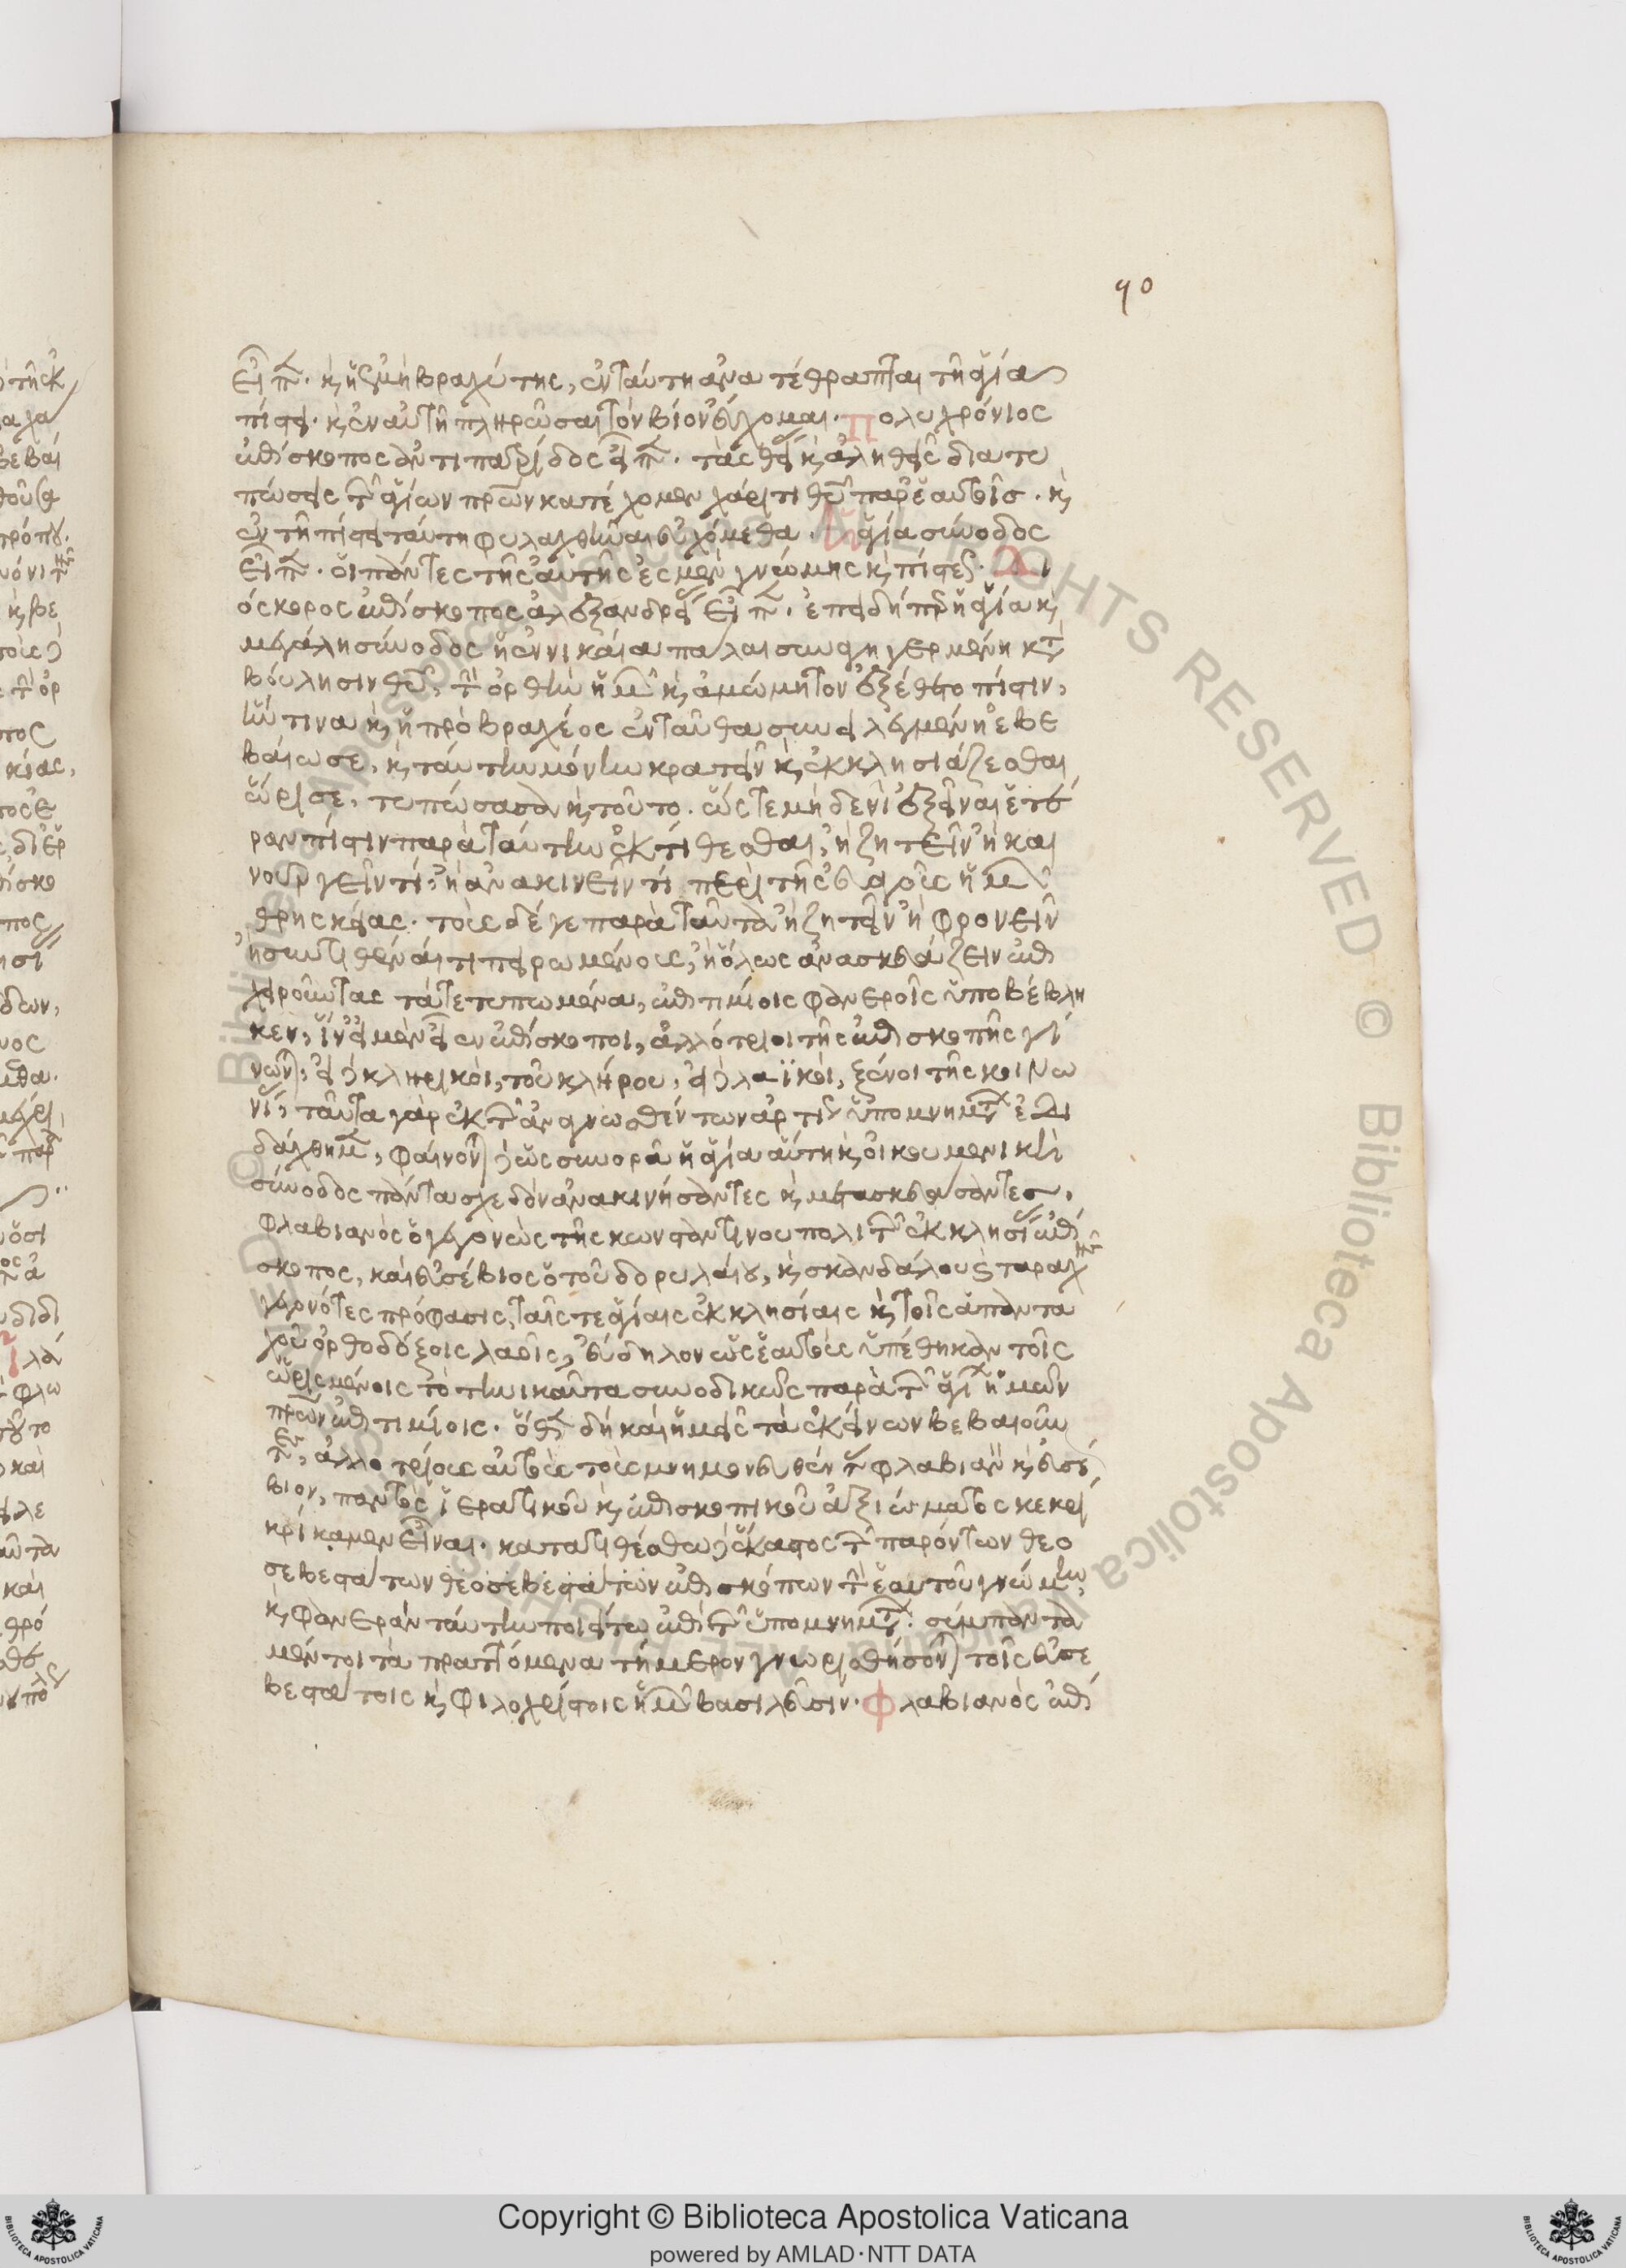 90
εἶπεν· καὶ ἡ ἐμὴ βραχύτης, ἐν ταύτη ἀνατέθραπται τῆ ἁγία
πίστει· καὶ ἐν αὐτῆ πληρῶσαι τὸν βίον εὔχομαι· Πολυχρόνιος
ἐπίσκοπος ἀντιπατρίδος εἶπεν· τὰς θείας καὶ ἀληθεῖς διατυ
πώσεις τῶν ἁγίων πατέρων κατέχομεν χάριτι θεοῦ παρ' ἑαυτοῖς· καὶ
ἐν τῆ πίστει ταύτη φυλαχθῆναι εὐχόμεθα· ἡ ἁγία σύνοδος
εἶπεν· οἱ πάντες τῆς αὐτῆς ἐσμὲν γνώμης καὶ πίστεως· Δι
όσκορος ἐπίσκοπος ἀλεξανδρείας εἶπεν· ἐπειδήπερ ἡ ἁγία καὶ
μεγάλη σύνοδος ἡ ἐν νικαία πάλαι συνηγερμένη κατὰ
βούλησιν θεοῦ, τὴν ὀρθὴν ἡμῶν καὶ ἀμώμητον ἐξέθετο πίστιν,
ἥν τινα καὶ ἡ πρὸ βραχέος ἐνταῦθα συνειλεγμένη ἐβε
βαίωσε, καὶ ταύτην μόνην κρατεῖν καὶ ἐκκλησιάζεσθαι
ὥρισε, τυπώσασα καὶ τοῦτο· ὥστε μηδενὶ ἐξεῖναι ἑτέ
ραν πίστιν παρὰ ταύτην ἐκτίθεσθαι, ἢ ζητεῖν ἢ και
νουργεῖν τί, ἢ ἀνακινεῖν τί περὶ τῆς εὐαγοῦς ἡμῶν
θρησκείας· τοὺς δέ γε παρὰ ταῦτα ἢ ζητεῖν ἢ φρονεῖν
ἢ συντιθέναι τι πειρωμένους, ἢ ὅλως ἀνασκευάζειν ἐπι
χειροῦντας τὰ τετυπωμένα, ἐπιτιμίοις φανεροῖς ὑποβέβλη
κεν, ἵν' εἰ μὲν εἶεν ἐπίσκοποι, ἀλλότριοι τῆς ἐπισκοπῆς γέ
νωνται, εἰ δὲ κληρικοὶ, τοῦ κλήρου, εἰ δὲ λαϊκοὶ, ξένοι τῆς κοινω
νίας, ταῦτα γὰρ ἐκ τῶν ἀναγνωσθέντων ἀρτίως ὑπομνημάτων ἐδι
δάχθημεν, φαίνονται δὲ ὡς συνορᾶ ἡ ἁγία αὕτη καὶ οἰκουμενικὴ
σύνοδος πάντα σχεδὸν ἀνακινήσαντες καὶ μετασκευάσαντες,
φλαβιανὸς ὁ γεγονὼς τῆς κωνσταντινουπολιτῶν ἐκκλησίας ἐπί
σκοπος, καὶ εὐσέβιος ὁ τοῦ δορυλαίου, καὶ σκανδάλου καὶ ταραχῆς
γεγονότες πρόφασις, ταῖς τε ἁγίαις ἐκκλησίαις καὶ τοῖς ἁπαντα
χοῦ ὀρθοδόξοις λαοῖς, εὔδηλον ὡς ἑαυτοὺς ὑπέθηκαν τοῖς
ὡρισμένοις τὸ τηνικαῦτα συνοδικῶς παρὰ τῶν ἁγίων ἡμῶν
πατέρων ἐπιτιμίοις· ὅθεν δὴ καὶ ἡμεῖς τὰ ἐκείνων βεβαιοῦν
τες, ἀλλοτρίους αὐτοὺς τοὺς μνημονευθέντας φλαβιανὸν καὶ εὐσέ
βιον, παντὸς ἱερατικοῦ καὶ ἐπισκοπικοῦ ἀξιώματος κεκρι
κρίκαμεν εἶναι· κατατιθέσθω δὲ ἕκαστος τῶν παρόντων θεο
σεβεστάτων θεοσεβεστάτων ἐπισκόπων τὴν ἑαυτοῦ γνώμην,
καὶ φανερὰν ταύτην ποιείτω ἐπὶ τῶν ὑπομνημάτων· σύμπαντα
μέντοι τὰ πραττόμενα τήμερον γνωρισθήσονται τοῖς εὐσε
βεστάτοις καὶ φιλοχρίστοις ἡμῶν βασιλεῦσιν· Φλαβιανὸς ἐπί
Copyright © Biblioteca Apostolica Vaticana
powered by AMLAD·NTT DATA